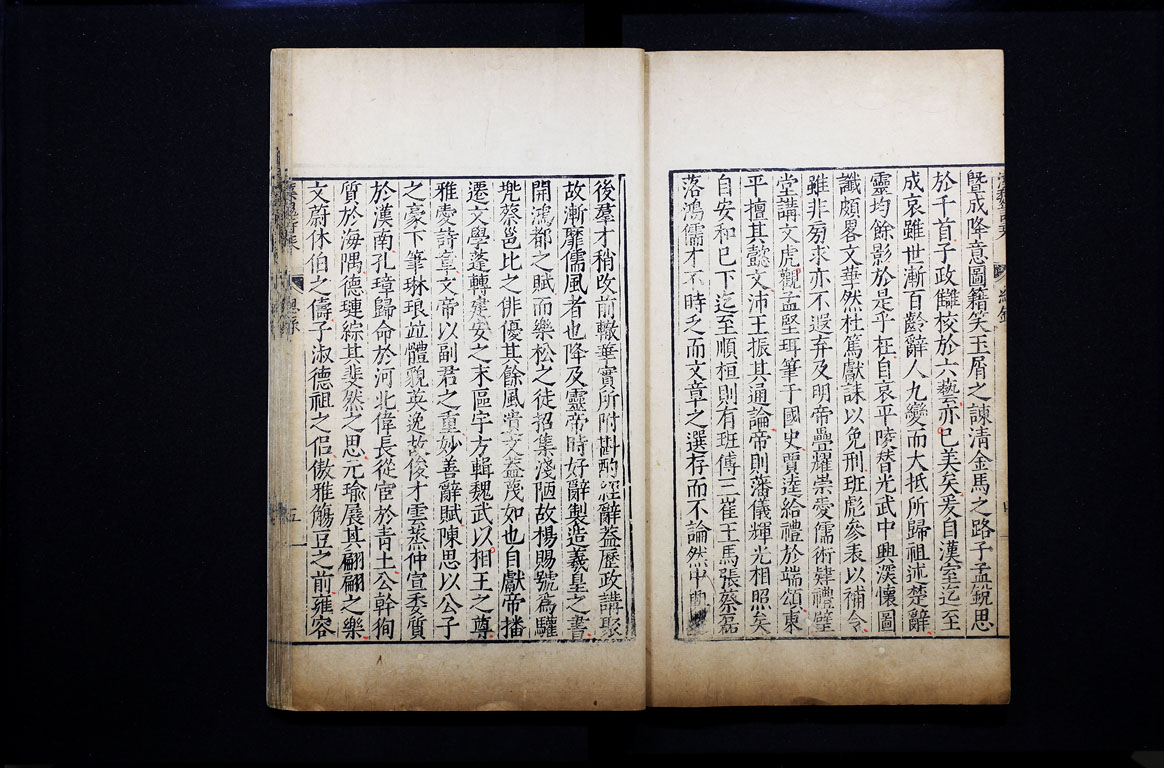 曁成降意圖籍笑玉屑之諫清金馬之路子孟銳思
於千首子政讎校於六藝亦已美矣爰自漢室迄至
成哀雖世漸百齡辭人九變而大抵所歸祖述楚辭
靈均餘影於是乎在自哀平陵替光武中興深懷圖
讖頗畧文華然杜篤獻誄以免刑班彪參表以補令
雖非旁求亦不遐弃及明帝疊耀崇愛儒術肄禮璧
堂講文虎觀孟堅珥筆于國史賈逵給禮於端頌東
平擅其懿文沛王振其通論帝則藩儀輝光相照矣
自安和已下迄至順桓則有班傅三崔王馬張蔡磊
落鴻儒才不時乏而文章之選存而不論然中興
後羣才稍改前轍華實所附斟酌經辭葢歷政講聚
故漸靡儒風者也降及靈帝時好辭製造羲皇之書
開鴻都之賦而樂松之徒招集淺陋故楊賜號爲驩
兠蔡邕比之俳優其餘風貴文葢蔑如也自獻帝播
遷文學蓬轉建安之末區宇方輯魏武以相王之尊
雅愛詩章文帝以副君之重妙善辭賦陳思以公子
之豪下筆琳琅竝體貌英逸故俊才雲蒸仲宣委質
於漢南孔璋歸命於河北偉長從宦於青土公幹徇
質於海隅德璉綜其斐然之思元瑜展其翩翩之樂
文蔚休伯之儔子淑德祖之侶傲雅觴豆之前雍容
五